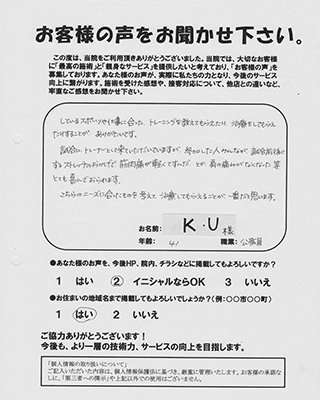 お客様の声をお聞かせ下さい。
この度は、当院をご利用頂きありがとうございました。当院では、大切なお客様
に「最高の施術」と「親身なサービス」を提供したいと考えており、「お客様の声」を
募集しております。あなた様のお声が、実際に私たちの力となり、今後のサービス
向上に繋がります。施術を受けた感想や、接客対応について、他店との違いなど、
率直なご感想をお聞かせ下さい。
しているスポーツや仕事に合った、トレーニングを教えてもらえたり、治療をしてもらえ
たりすることが ありがたいです。
試合に トレーナーとして来ていただいていますが
ストレッチのおかげで 筋肉痛が軽くてすんだ とか 肩の痛みがなくなった 等
とても喜んでおられます。
こちらのニーズに合ったものを考えて、治療してもらえることが 一番だと思います。
お名前: K・U 様
年齢: 41 職業: 公務員
●あなた様のお声を、今後HP、院内、チラシなどに掲載してもよろしいですか?
1 はい ② イニシャルならOK 3 いいえ
●お住まいの地域名まで掲載してもよろしいでしょうか?(例:〇〇市〇〇町)
1 はい 2 いいえ
ご協力ありがとうございます!
今後も、より一層の技術力、サービスの向上を目指します。
「個人情報の取り扱いについて」
ご記入いただいた内容は、個人情報保護法に基づき、厳重に管理いたします。お客様の承諾な
しに、「第三者への開示」や上記以外での使用はございません。